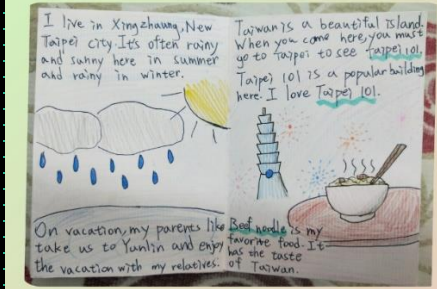 I live in Xingzhuang, New
Taipei city. It's often rainy
and sunny here in summer
and rainy in winter.
On vacation, my parents like
take us to Yunlin and enjoy
the vacation with my relatives.
Taiwan is a beautiful island.
When you come here, you must
go to Taipei to see Taipei 101.
Taipei 101 is a popular building
here. I love Taipei 101.
Beef noodle is my
favorite food. It
has the taste
of Taiwan.